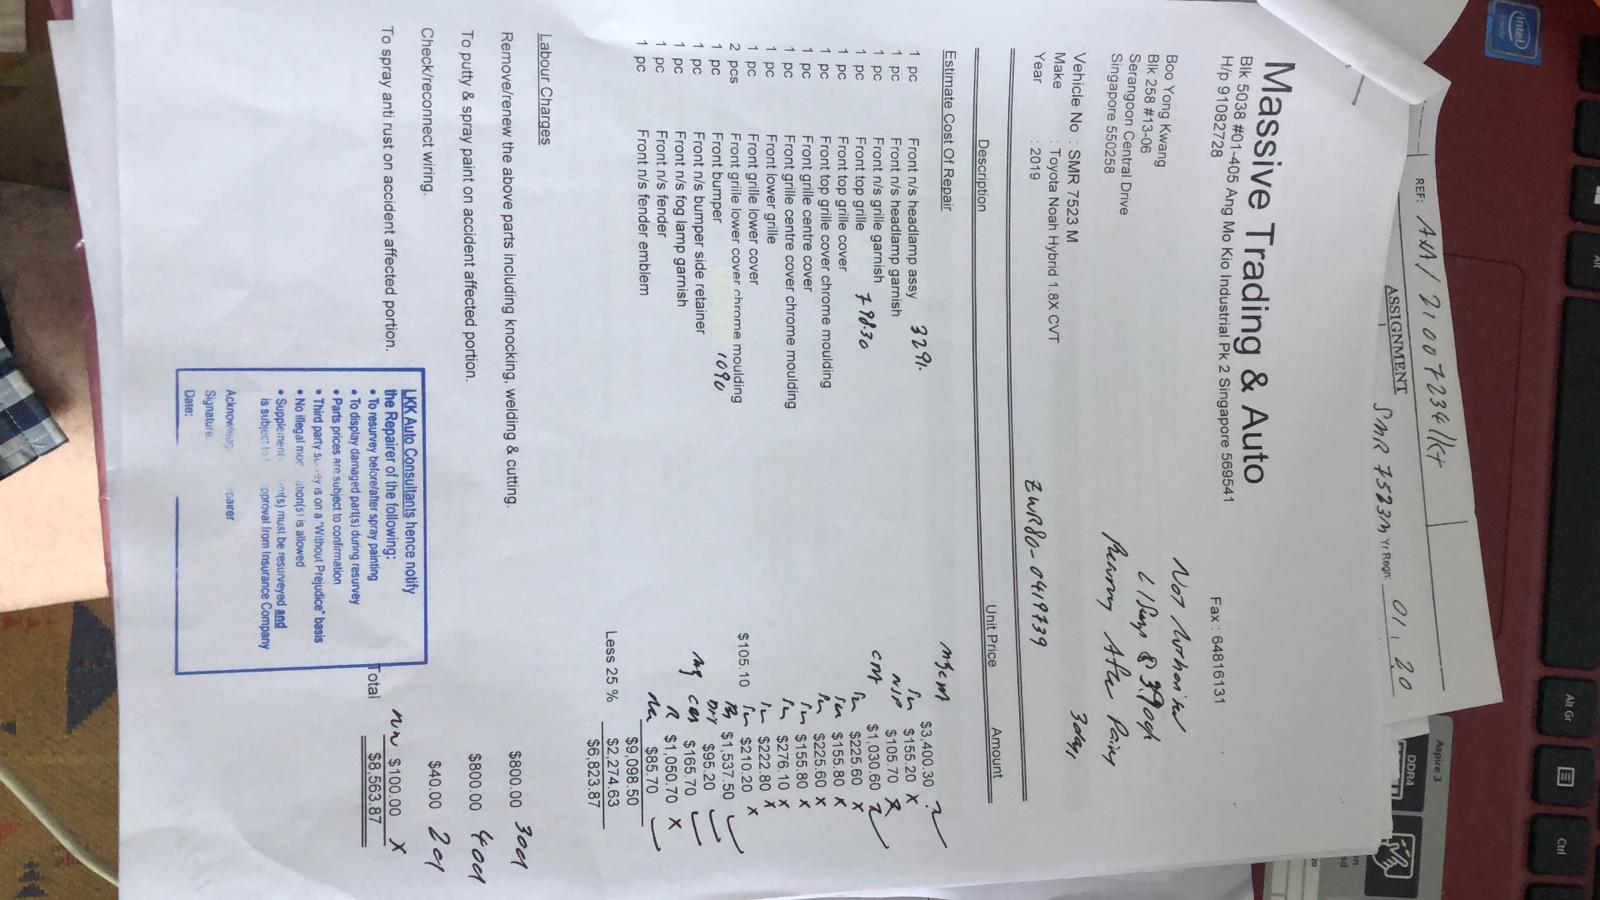 REF: AHA/21007234/Kt
ASSIGNMENT
SMR 7523M Yr Regn: 01, 20
Massive Trading & Auto
Blk 5038 #01-405 Ang Mo Kio Industrial Pk 2 Singapore 569541
H/p 91082728 Fax : 64816131
Boo Yong Kwang
Blk 258 #13-06
Serangoon Central Drive
Singapore 550258
Not
After
3 days
Vehicle No : SMR 7523 M
Make : Toyota Noah Hybrid 1.8X CVT
Year : 2019 ZWR80-0419739
Description Unit Price Amount
Estimate Cost Of Repair
1 pc Front n/s headlamp assy 3291. $3,400.30
1 pc Front n/s headlamp garnish $155.20 x
1 pc Front n/s grille garnish $105.70
1 pc Front top grille 798.30 cm $1,030.60
1 pc Front top grille cover $225.60 x
1 pc Front top grille cover chrome moulding $155.80 x
1 pc Front grille centre cover $225.60 x
1 pc Front grille centre cover chrome moulding $155.80 x
1 pc Front lower grille $276.10 x
1 pc Front grille lower cover $222.80 x
2 pcs Front griile lower cover chrome moulding $105.10 $210.20 x
1 pc Front bumper 1090 $1,537.50
1 pc Front n/s bumper side retainer $95.20
1 pc Front n/s fog lamp garnish $165.70
1 pc Front n/s fender R $1,050.70 x
1 pc Front n/s fender emblem $85.70
$9,098.50
Less 25 % $2,274.63
$6,823.87
Labour Charges
Remove/renew the above parts including knocking, welding & cutting. $800.00 300
To putty & spray paint on accident affected portion. $800.00 400
Check/reconnect wiring. $40.00 20
To spray anti rust on accident affected portion. $100.00 x
Total $8,563.87
LKK Auto Consultants hence notify
the Repairer of the following:
• To resurvey before/after spray painting
• To display damaged part(s) during resurvey
• Parts prices are subject to confirmation
• Third party survey is on a "Without Prejudice" basis
• No illegal is allowed
• must be resurveyed and
is subject to approval from Insurance Company
Signature:
Date:
intel
Aspire 3
DDR4
Alt Gr
Ctrl